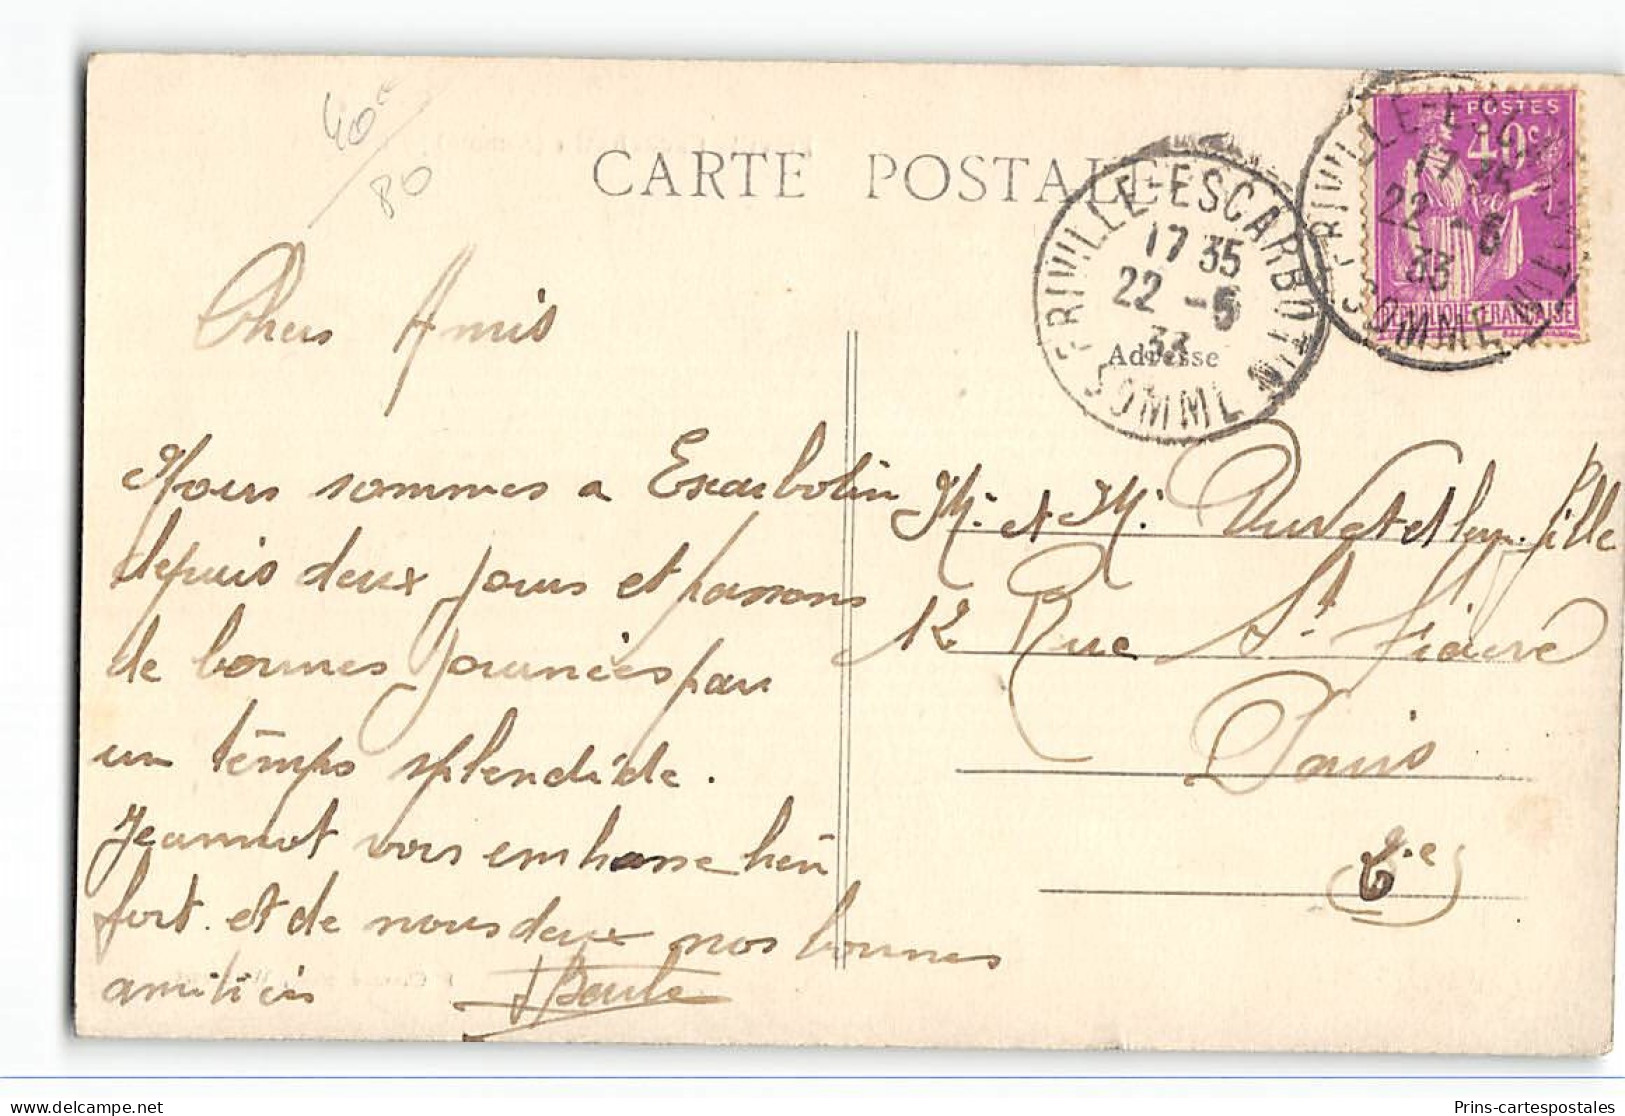 40e
80
CARTE POSTALE
FRIVILLE-ESCARBOTIN
17 35
22 -6
33
SOMME
FRIVILLE-ESCARBOTIN
17 35
22 -6
33
SOMME
POSTES
40c
REPUBLIQUE FRANCAISE
Adresse
Chers Amis
Nous sommes a Escarbotin
depuis deux jours et passons
de bonnes journées par
un temps splendide.
Jeannot vous embrasse bien
fort. et de nous deux nos bonnes
amitiés
M. et M. et leur fille
12 Rue St. Fiacre
Paris
2.e
delcampe.net
Prins-cartespostales